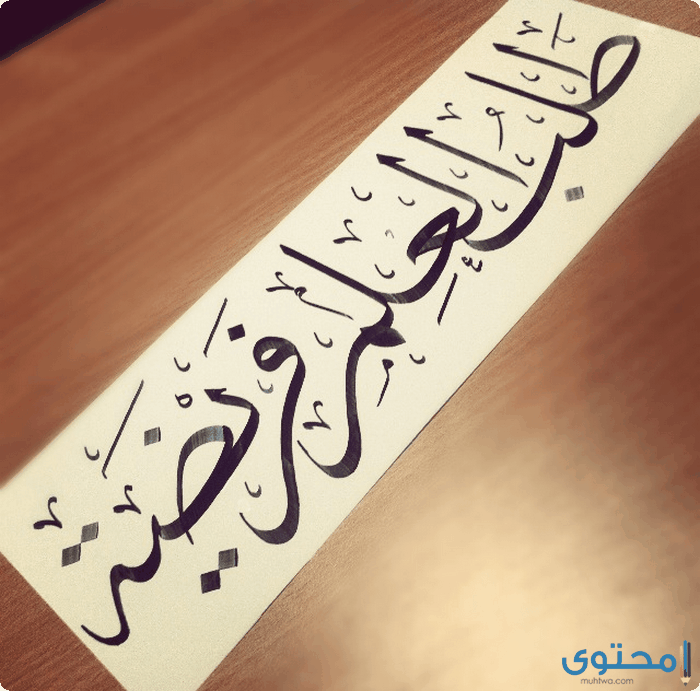 طلب العلم فريضة
محتوى
muhtwa.com